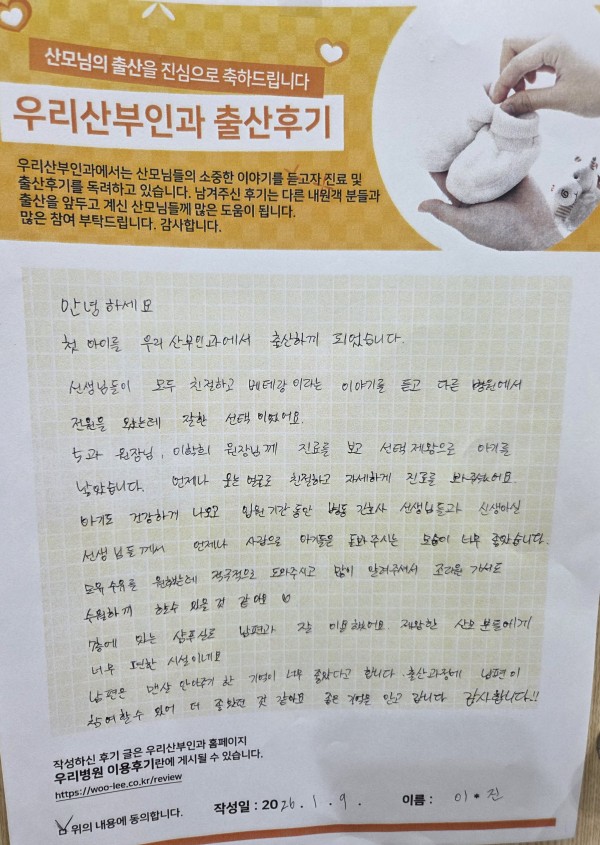 산모님의 출산을 진심으로 축하드립니다
우리산부인과 출산후기
우리산부인과에서는 산모님들의 소중한 이야기를 듣고자 진료 및
출산후기를 독려하고 있습니다. 남겨주신 후기는 다른 내원객 분들과
출산을 앞두고 계신 산모님들께 많은 도움이 됩니다.
많은 참여 부탁드립니다. 감사합니다.
안녕하세요
첫 아이를 우리 산부인과에서 출산하게 되었습니다.
선생님들이 모두 친절하고 베테랑이라는 이야기를 듣고 다른 병원에서
전원을 왔는데 잘한 선택이었어요.
5과 원장님, 이학희 원장님께 진료를 보고 선택제왕으로 아기를
낳았습니다. 언제나 웃는 얼굴로 친절하고 자세하게 진료를 봐주셨어요
아기도 건강하게 나오고 입원기간동안 병동 간호사 선생님들과 신생아실
선생님들께서 언제나 사랑으로 아기들을 돌봐주시는 모습이 너무 좋았습니다.
모유수유를 원했는데 적극적으로 도와주시고 많이 알려주셔서 조리원 가서도
수월하게 할수 있을 것 같아요
7층에 있는 샴푸실도 남편과 잘 이용했어요 제왕한 산모분들에게
너무 편한 시설이네요
남편은 맨살 안아주기 한 기억이 너무 좋았다고 합니다. 출산과정에 남편이
참여할수 있어 더 좋았던 것 같아요 좋은 기억을 안고 갑니다 감사합니다!!
작성하신 후기 글은 우리산부인과 홈페이지
우리병원 이용후기란에 게시될 수 있습니다.
https://woo-lee.co.kr/review
위의 내용에 동의합니다. 작성일 : 2026. 1. 9. 이름 : 이*진